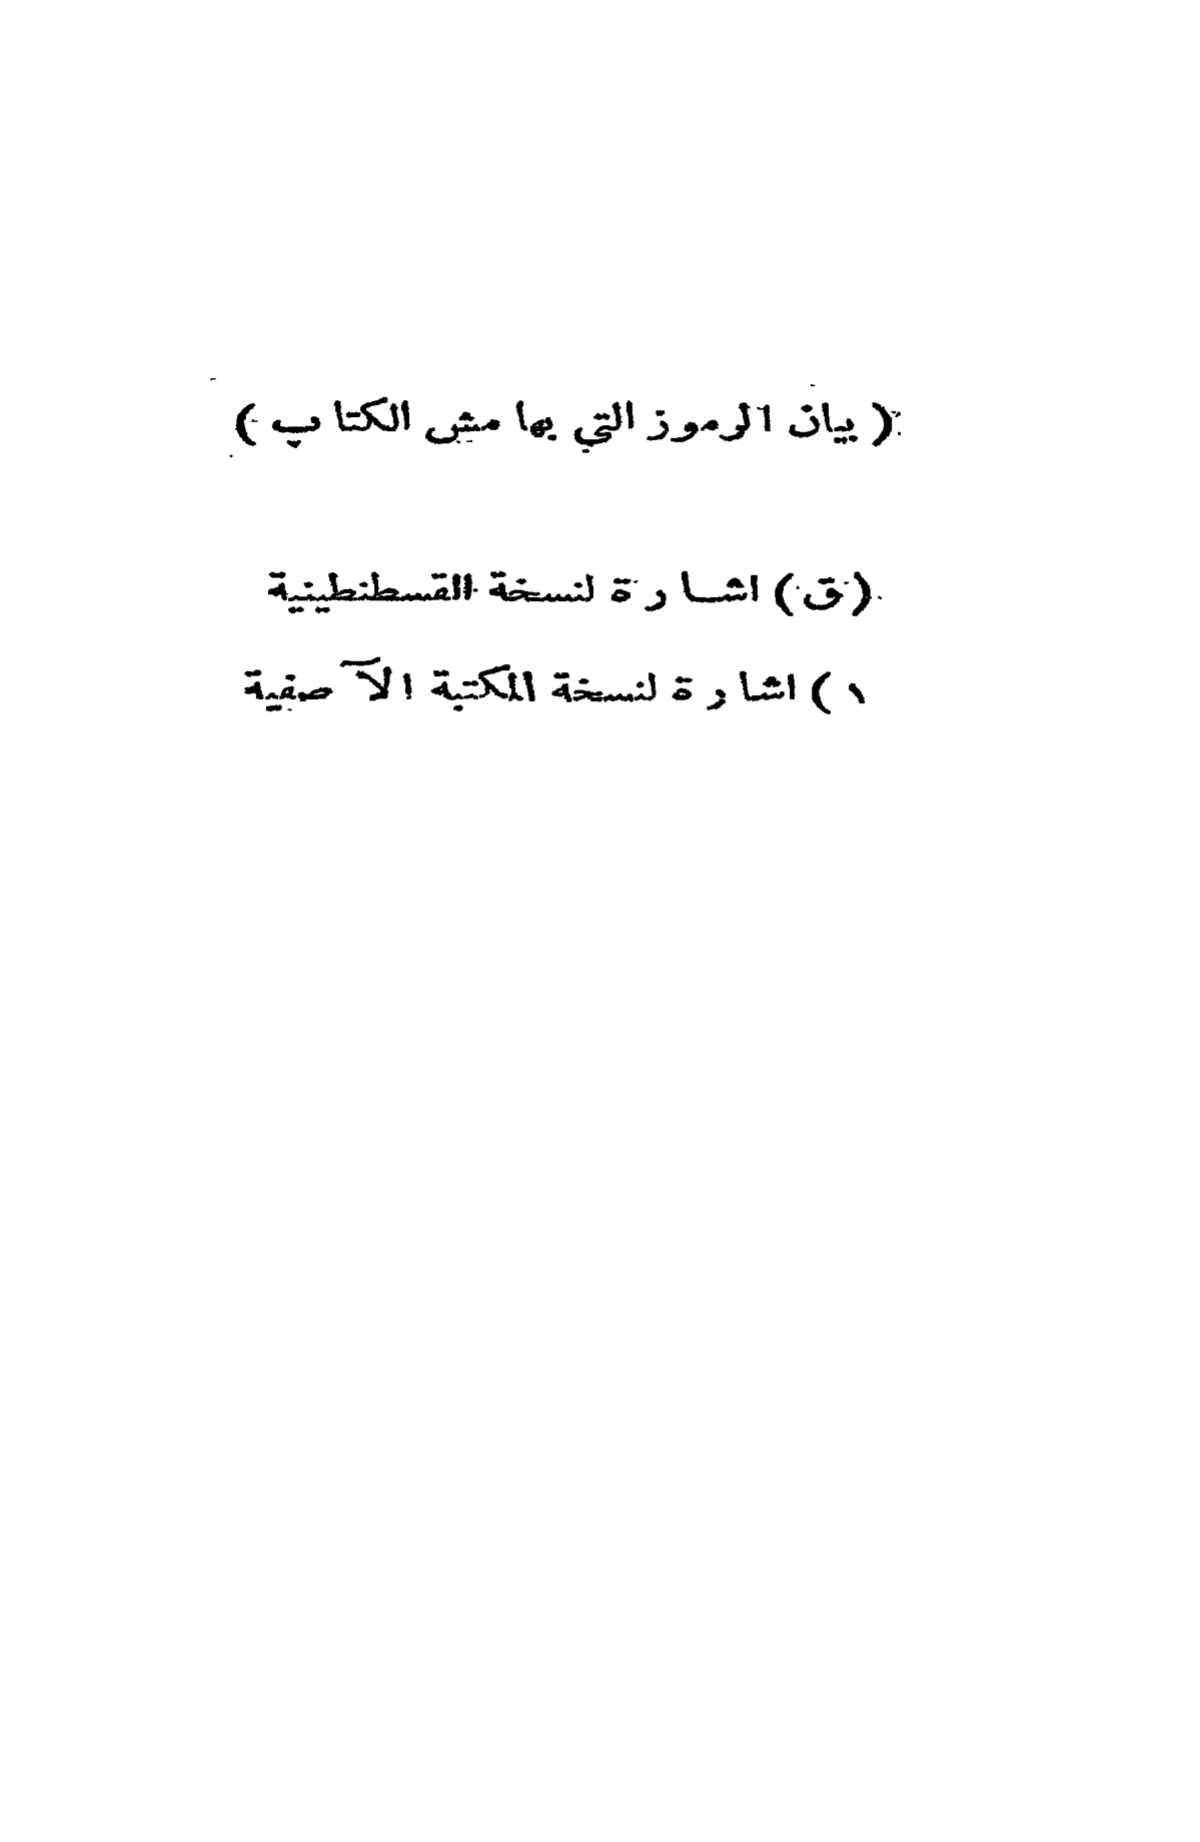 ( بيان الرموز التي بهامش الكتاب )
( ق ) اشارة لنسخة القسطنطينية
ا ) اشارة لنسخة المكتبة الآصفية